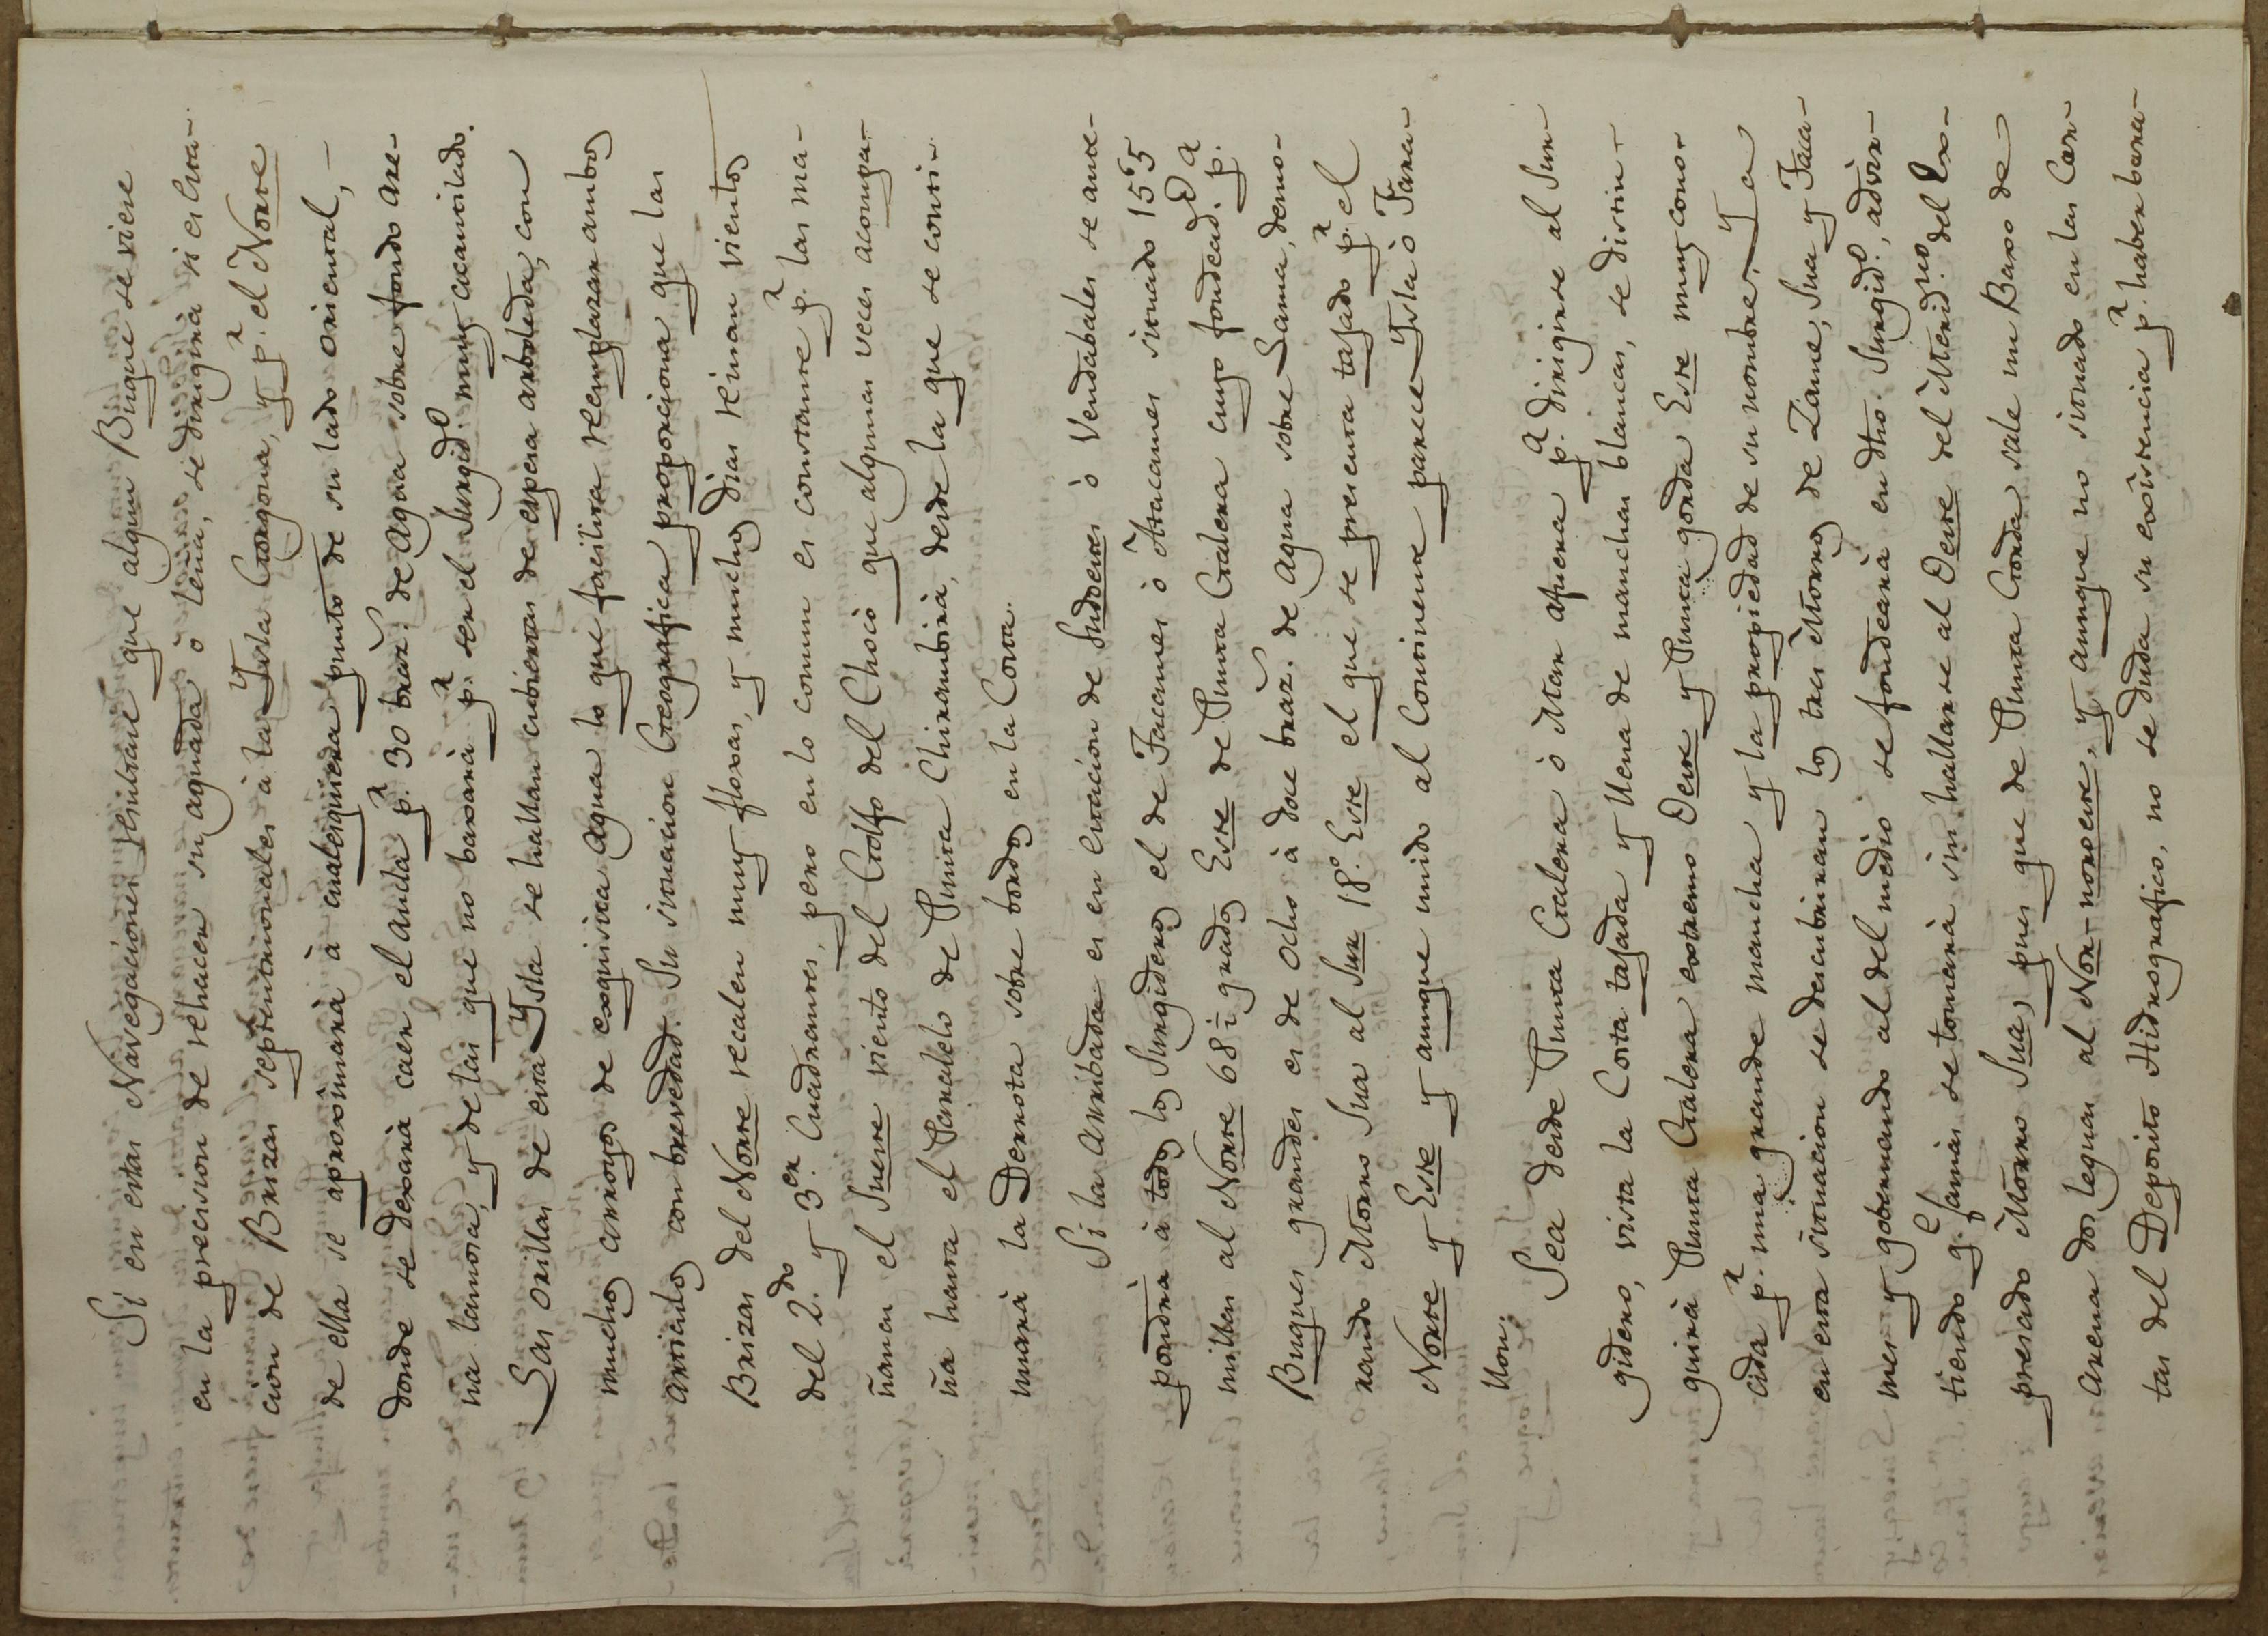 Si en estas Navegaciones resultare que algun Buque se viere
en la precision de rehacer su aguada ò leña, se dirigirà si es Esta-
cion de Brizas septentrionales à la Ysla Gorgona, y p.ª el Norte
de ella se aproximarà à cualesquiera punto de su lado oriental, -
donde se dexarà caer el ancla p.ª 30 braz.s de agua sobre fondo are-
na lamosa, y de las que no baxarà p.ª ser el Surgid.o muy acantilado.
Las orillas de esta Ysla se hallan cubiertas de espesa arboleda, con
muchos arroyos de exquisita agua lo que facilita reemplazar ambos
articulos con brevedad. Su situacion Geografica proporciona que las
Brizas del Norte recalen muy floxas, y muchos dias reinan vientos
del 2.do y 3.er Cuadrantes, pero en lo comun es constante p.ª las ma-
ñanas el Sueste viento del Golfo del Chocò que algunas veces acompa-
ña hasta el Paralelo de Punta Chirambirà, desde la que se conti-
nuarà la Derrota sobre bordos en la Costa.
Si la arribada es en Estacion de Sudoestes ò Vendabales se ante-
pondrà à todos los Surgideros el de Tacames ò Atacames situado 15 5
millas al Norte 68 ½ grados Este de Punta Galera cuyo fondead.o p.ª
Buques grandes es de ocho à doce braz.s de agua sobre Lama, demo-
rando Morro Sua al Sur 18.º Este el que se presenta tajado p.ª el
Norte y Este y aunque unido al Continente parece Ysla ò Fara-
llon.
Sea desde Punta Galera ò Mar afuera p.ª dirigirse al Sur-
gidero, vista la Costa tajada y llena de manchas blancas, se distin-
guirà Punta Galera extremo Oeste y Punta gorda Este muy cono-
cida p.ª una grande mancha y la propiedad de su nombre. Ya
en esta situacion se descubriran los tres Morros de Zame, Sua y Taca-
mes y gobernando al del medio se fondearà en dho. Surgid.o, advir-
tiendo q.e jamas se tomarà sin hallarse al Oeste del Merid.no del Ex-
presado Morro Sua, pues que de Punta Gorda sale un Baxo de
Arena dos leguas al Nor-noroeste, y aunque no situado en las Car-
tas del Deposito Hidrografico, no se duda su existencia p.ª haber bara-